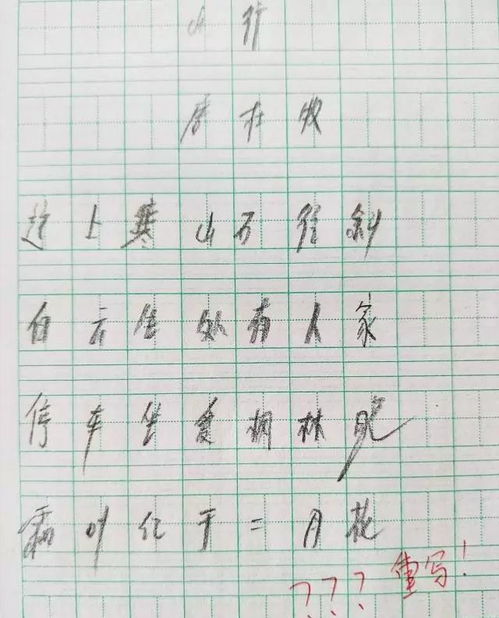 山行
唐杜牧
远上寒山石径斜
白云生处有人家
停车坐爱枫林晚
霜叶红于二月花
??? 重写!